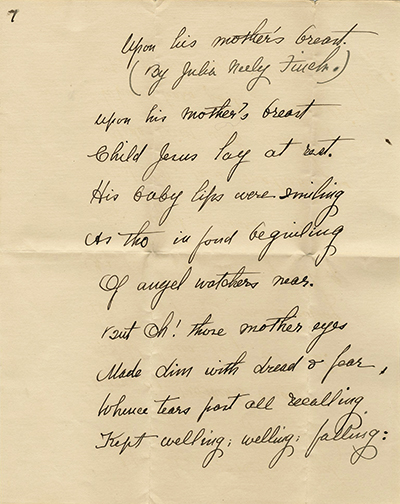 7
Upon his mother's breast.
(By Julia Neely Finch.)
Upon his mother's breast
Child Jesus lay at rest.
His baby lips were smiling
As tho in fond beguiling
Of angel watchers near.
But Oh! those mother eyes
Made dim with dread & fear,
Whence tears past all recalling
Kept welling; welling; falling: